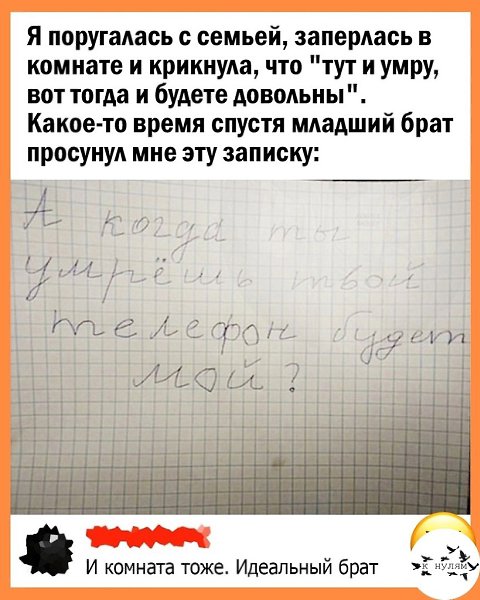 Я поругалась с семьей, заперлась в
комнате и крикнула, что "тут и умру,
вот тогда и будете довольны".
Какое-то время спустя младший брат
просунул мне эту записку:
А когда ты
умрёшь твой
телефон будет
мой?
И комната тоже. Идеальный брат
К НУЛЯМ